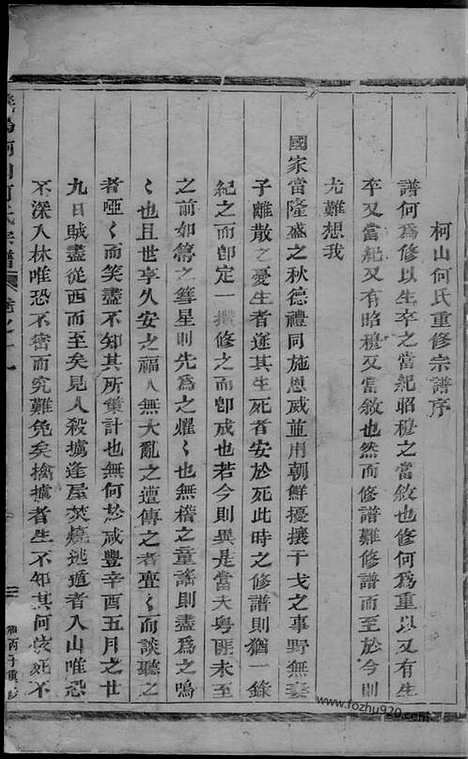 柯山何氏重修宗譜序
譜何為修以生卒之當紀昭穆之當敘也修何為重以又有生
卒又當紀又有昭穆又當敘也然而修譜難修譜而至於今則
尤難想我
國家當隆盛之秋德禮同施恩威並用朝鮮擾攘干戈之事野無妻
子離散之憂生者遂其生死者安於死此時之修譜則猶一錄
紀之而即定一撰修之而即成也若今則異是當夫粵匪未至
之前如篲之彗星則先為之燿〻也無稽之童謠則盡為之鳴
〻也且世享久安之福人無大亂之遭傳之者亹〻而談聽之
者啞〻而笑盡不知其所重計也無何於咸豐辛酉五月之廿
九日賊盡從西而至矣見人殺擄逢屋焚燒逃遁者入山唯恐
不深入林唯恐不密而究難免矣擒擄者生不知其何嫁死不
何氏宗譜
www.fozhu920.com